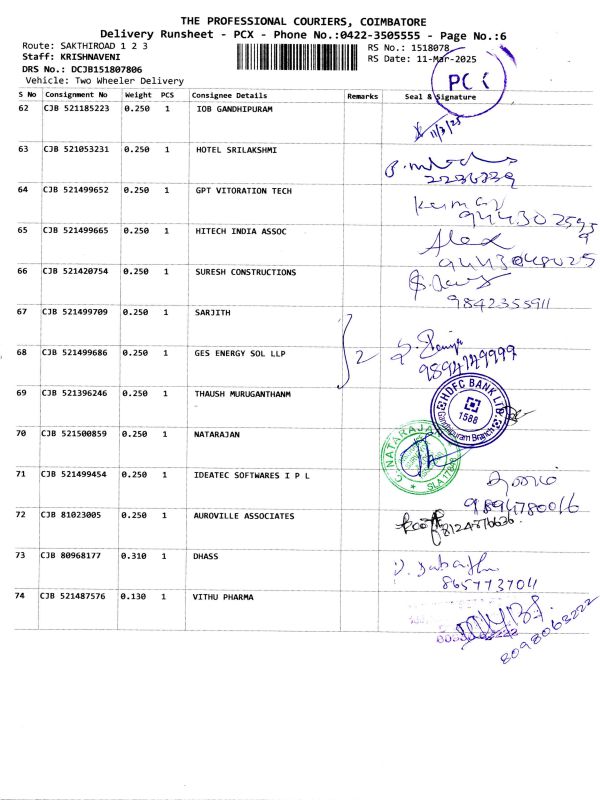 THE PROFESSIONAL COURIERS, COIMBATORE
Delivery Runsheet - PCX - Phone No.:0422-3505555 - Page No.:6
Route: SAKTHIROAD 1 2 3
RS No.: 1518078
Staff: KRISHNAVENI
RS Date: 11-Mar-2025
DRS No.: DCJB151807806
Vehicle: Two Wheeler Delivery
PCX
S No Consignment No Weight PCS Consignee Details Remarks Seal & Signature
62 CJB 521185223 0.250 1 IOB GANDHIPURAM
11/3/25
63 CJB 521053231 0.250 1 HOTEL SRILAKSHMI
2236839
64 CJB 521499652 0.250 1 GPT VITORATION TECH
Kumar
65 CJB 521499665 0.250 1 HITECH INDIA ASSOC
Alex
66 CJB 521420754 0.250 1 SURESH CONSTRUCTIONS
9842355911
67 CJB 521499709 0.250 1 SARJITH
68 CJB 521499686 0.250 1 GES ENERGY SOL LLP
2
9894749999
69 CJB 521396246 0.250 1 THAUSH MURUGANTHANM
HDFC BANK LTD
1588
Gandhipuram Branch
70 CJB 521500859 0.250 1 NATARAJAN
C. NATARAJAN
71 CJB 521499454 0.250 1 IDEATEC SOFTWARES I P L
9894780016
72 CJB 81023005 0.250 1 AUROVILLE ASSOCIATES
73 CJB 80968177 0.310 1 DHASS
8657737041
74 CJB 521487576 0.130 1 VITHU PHARMA
8098063222